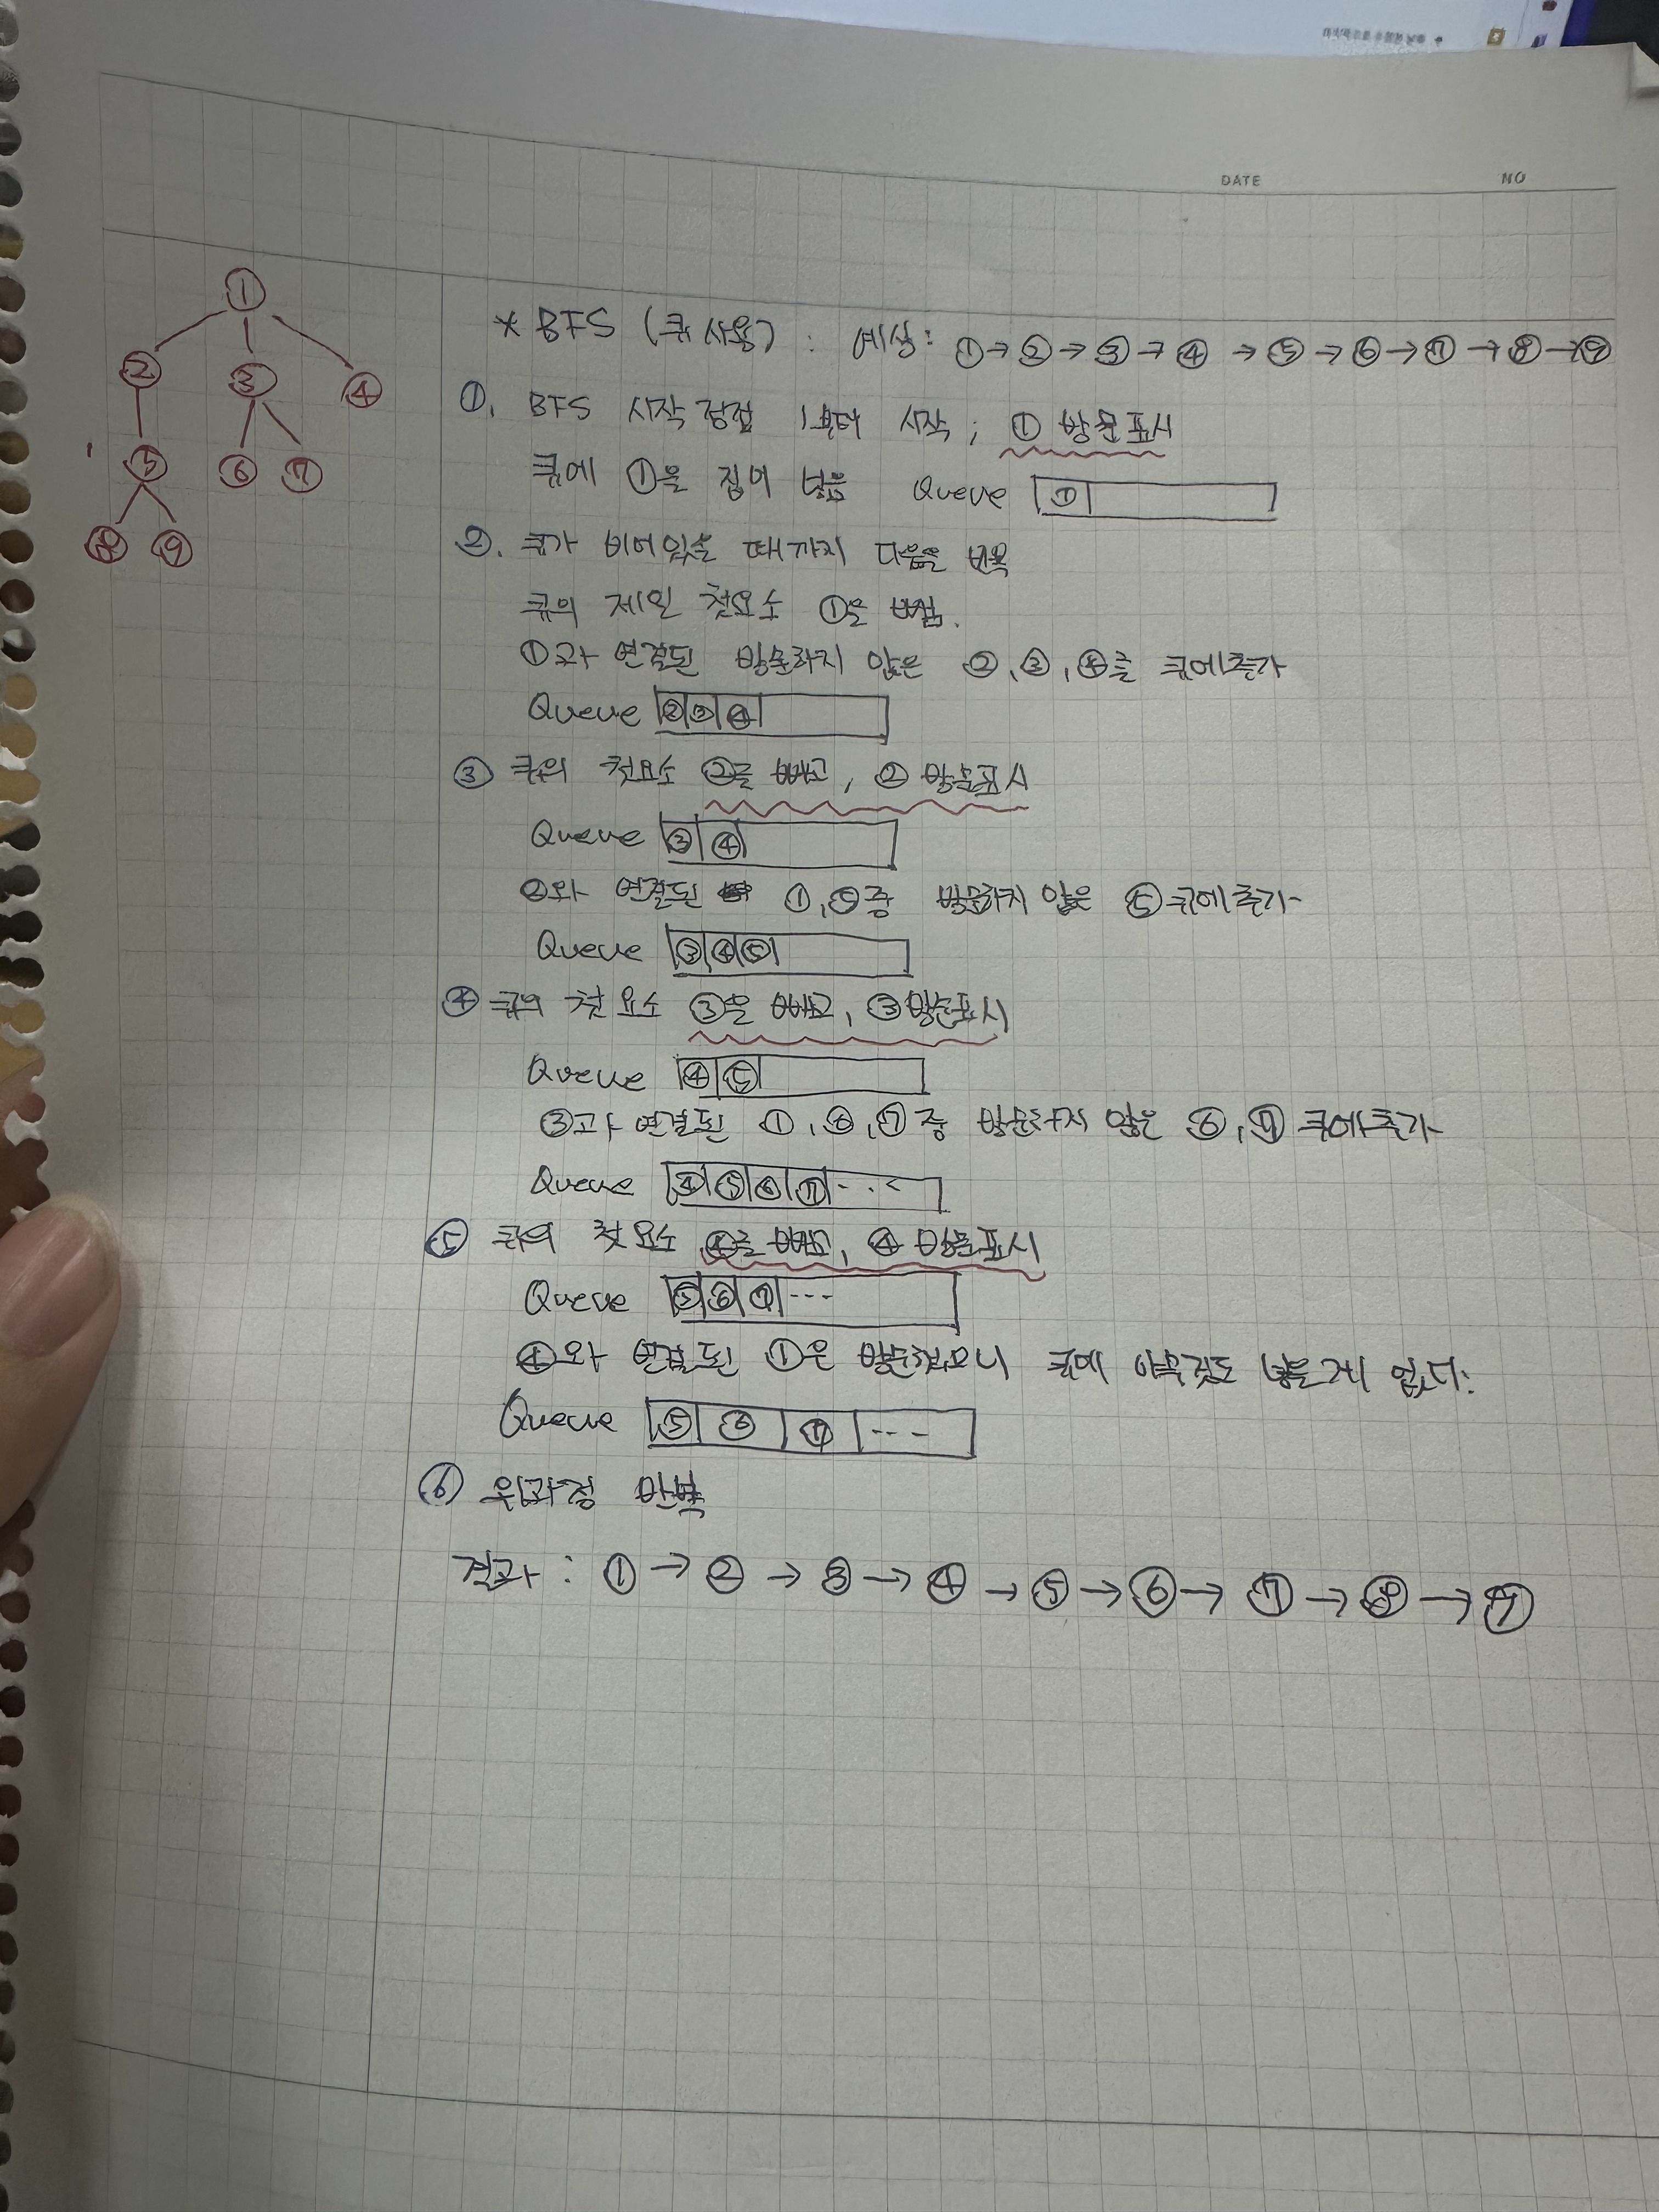 DATE NO
①
② ③ ④
⑤ ⑥ ⑦
⑧ ⑨
* BFS (큐 사용) : 예상: ①→②→③→④→⑤→⑥→⑦→⑧→⑨
①. BFS 시작 정점 1부터 시작; ① 방문표시
큐에 ①을 집어 넣음 Queue ①
②. 큐가 비어있을 때까지 다음을 반복
큐의 제일 첫요소 ①을 뺌.
①과 연결된 방문하지 않은 ②,③,④를 큐에 추가
Queue ② ③ ④
③ 큐의 첫요소 ②를 빼고, ② 방문표시
Queue ③ ④
②와 연결된 ①,⑤중 방문하지 않은 ⑤ 큐에 추가
Queue ③ ④ ⑤
④ 큐의 첫 요소 ③을 빼고, ③방문표시
Queue ④ ⑤
③과 연결된 ①,⑥,⑦ 중 방문하지 않은 ⑥,⑦ 큐에 추가
Queue ④ ⑤ ⑥ ⑦ ...
⑤ 큐의 첫 요소 ④를 빼고, ④ 방문표시
Queue ⑤ ⑥ ⑦ ---
④와 연결된 ①은 방문했으니 큐에 아무것도 넣을게 없다.
Queue ⑤ ⑥ ⑦ ---
⑥ 위과정 반복
결과 : ①→②→③→④→⑤→⑥→⑦→⑧→⑨